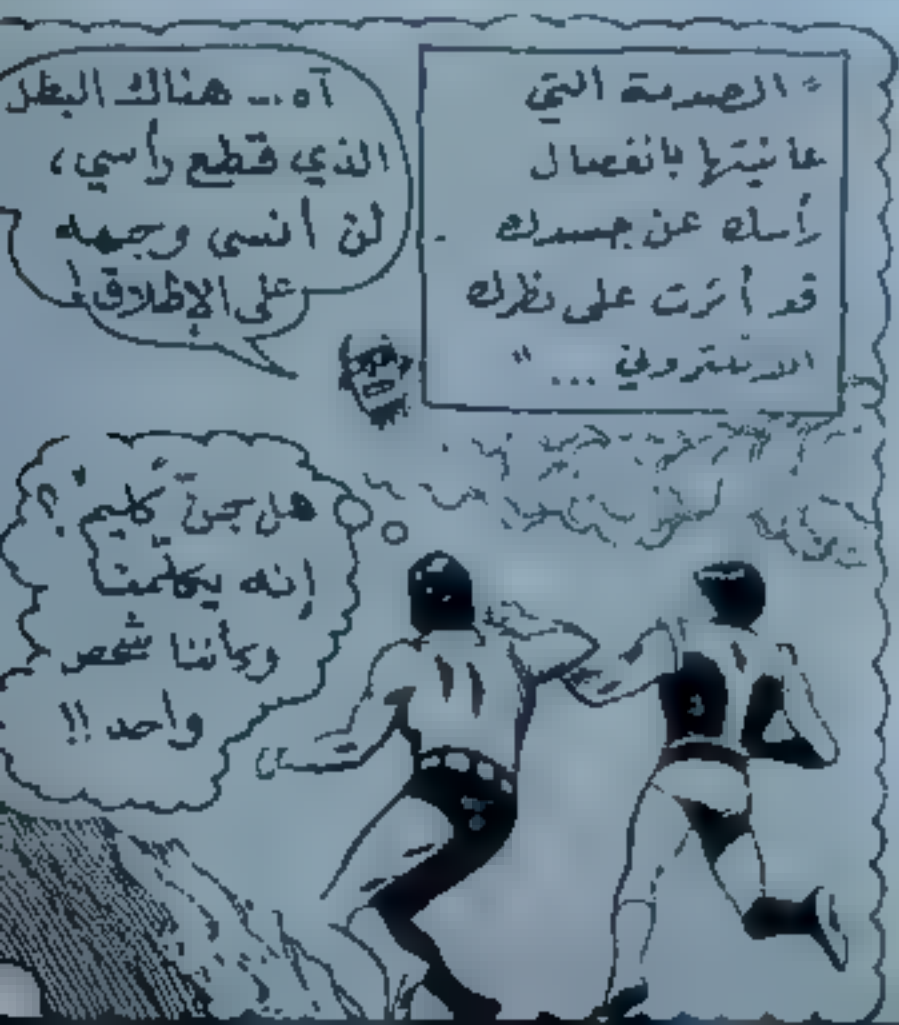 " الصدمة التي
عانيتها بانفصال
رأسك عن جسدك
قد أثرت على نظرك
... "
آه ... هناك البطل
الذي قطع رأسي،
لن أنسى وجهه
على الإطلاق!
هل جن كليا ؟
إنه يكلمنا
وكأننا شخص
واحد !!